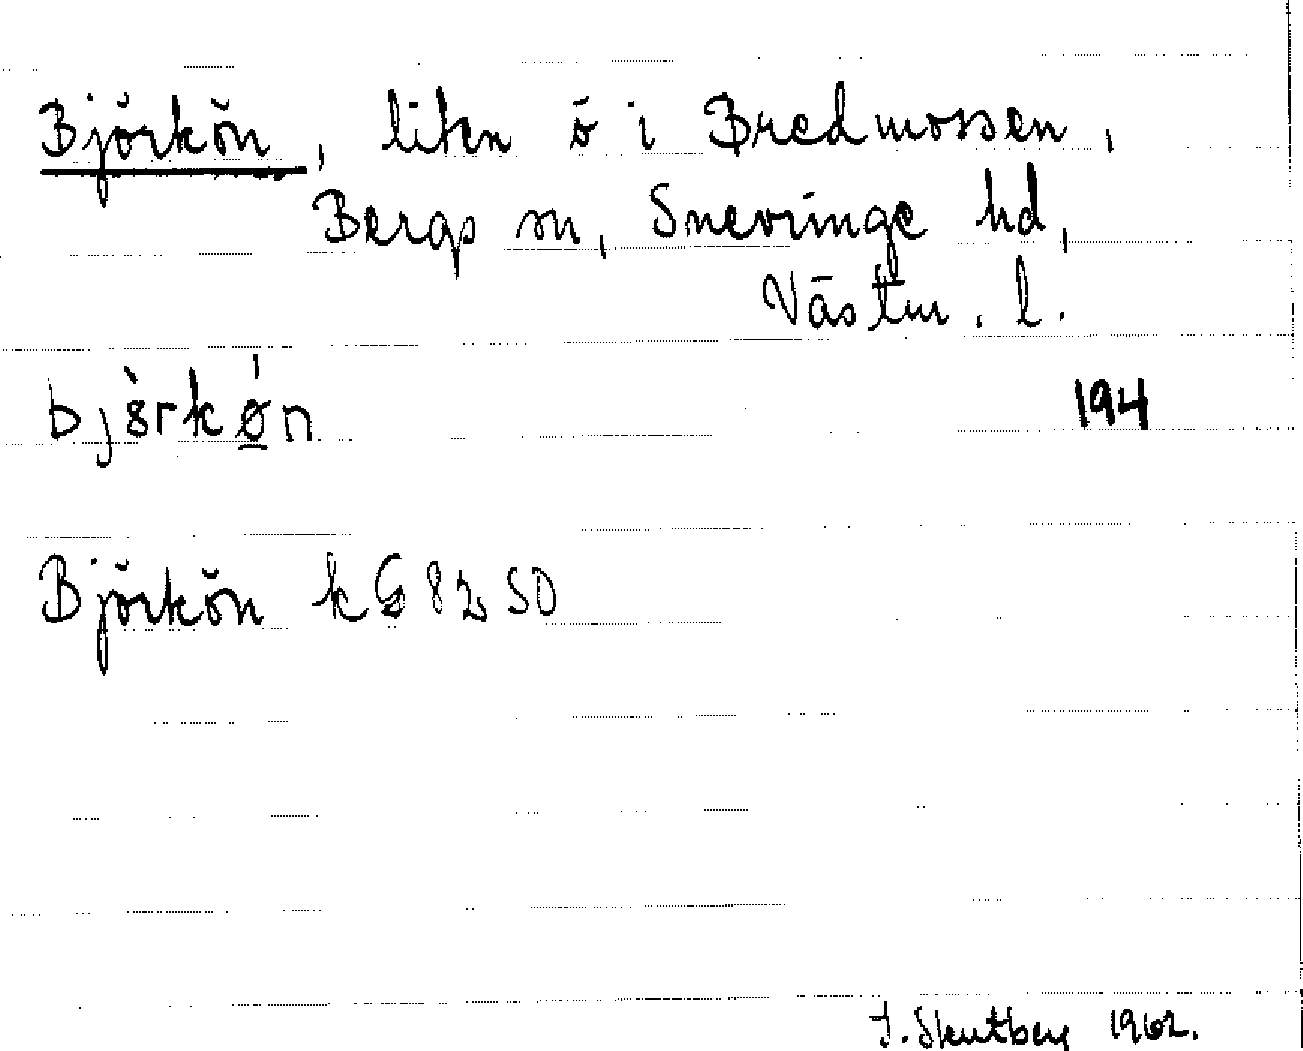 Björkön, liten ö i Bredmossen,
Bergs sn, Snevringe hd,
Västm. l.
bjö̀rkǿn 194
Björkön kG 82 SO
J. Skutberg 1962.